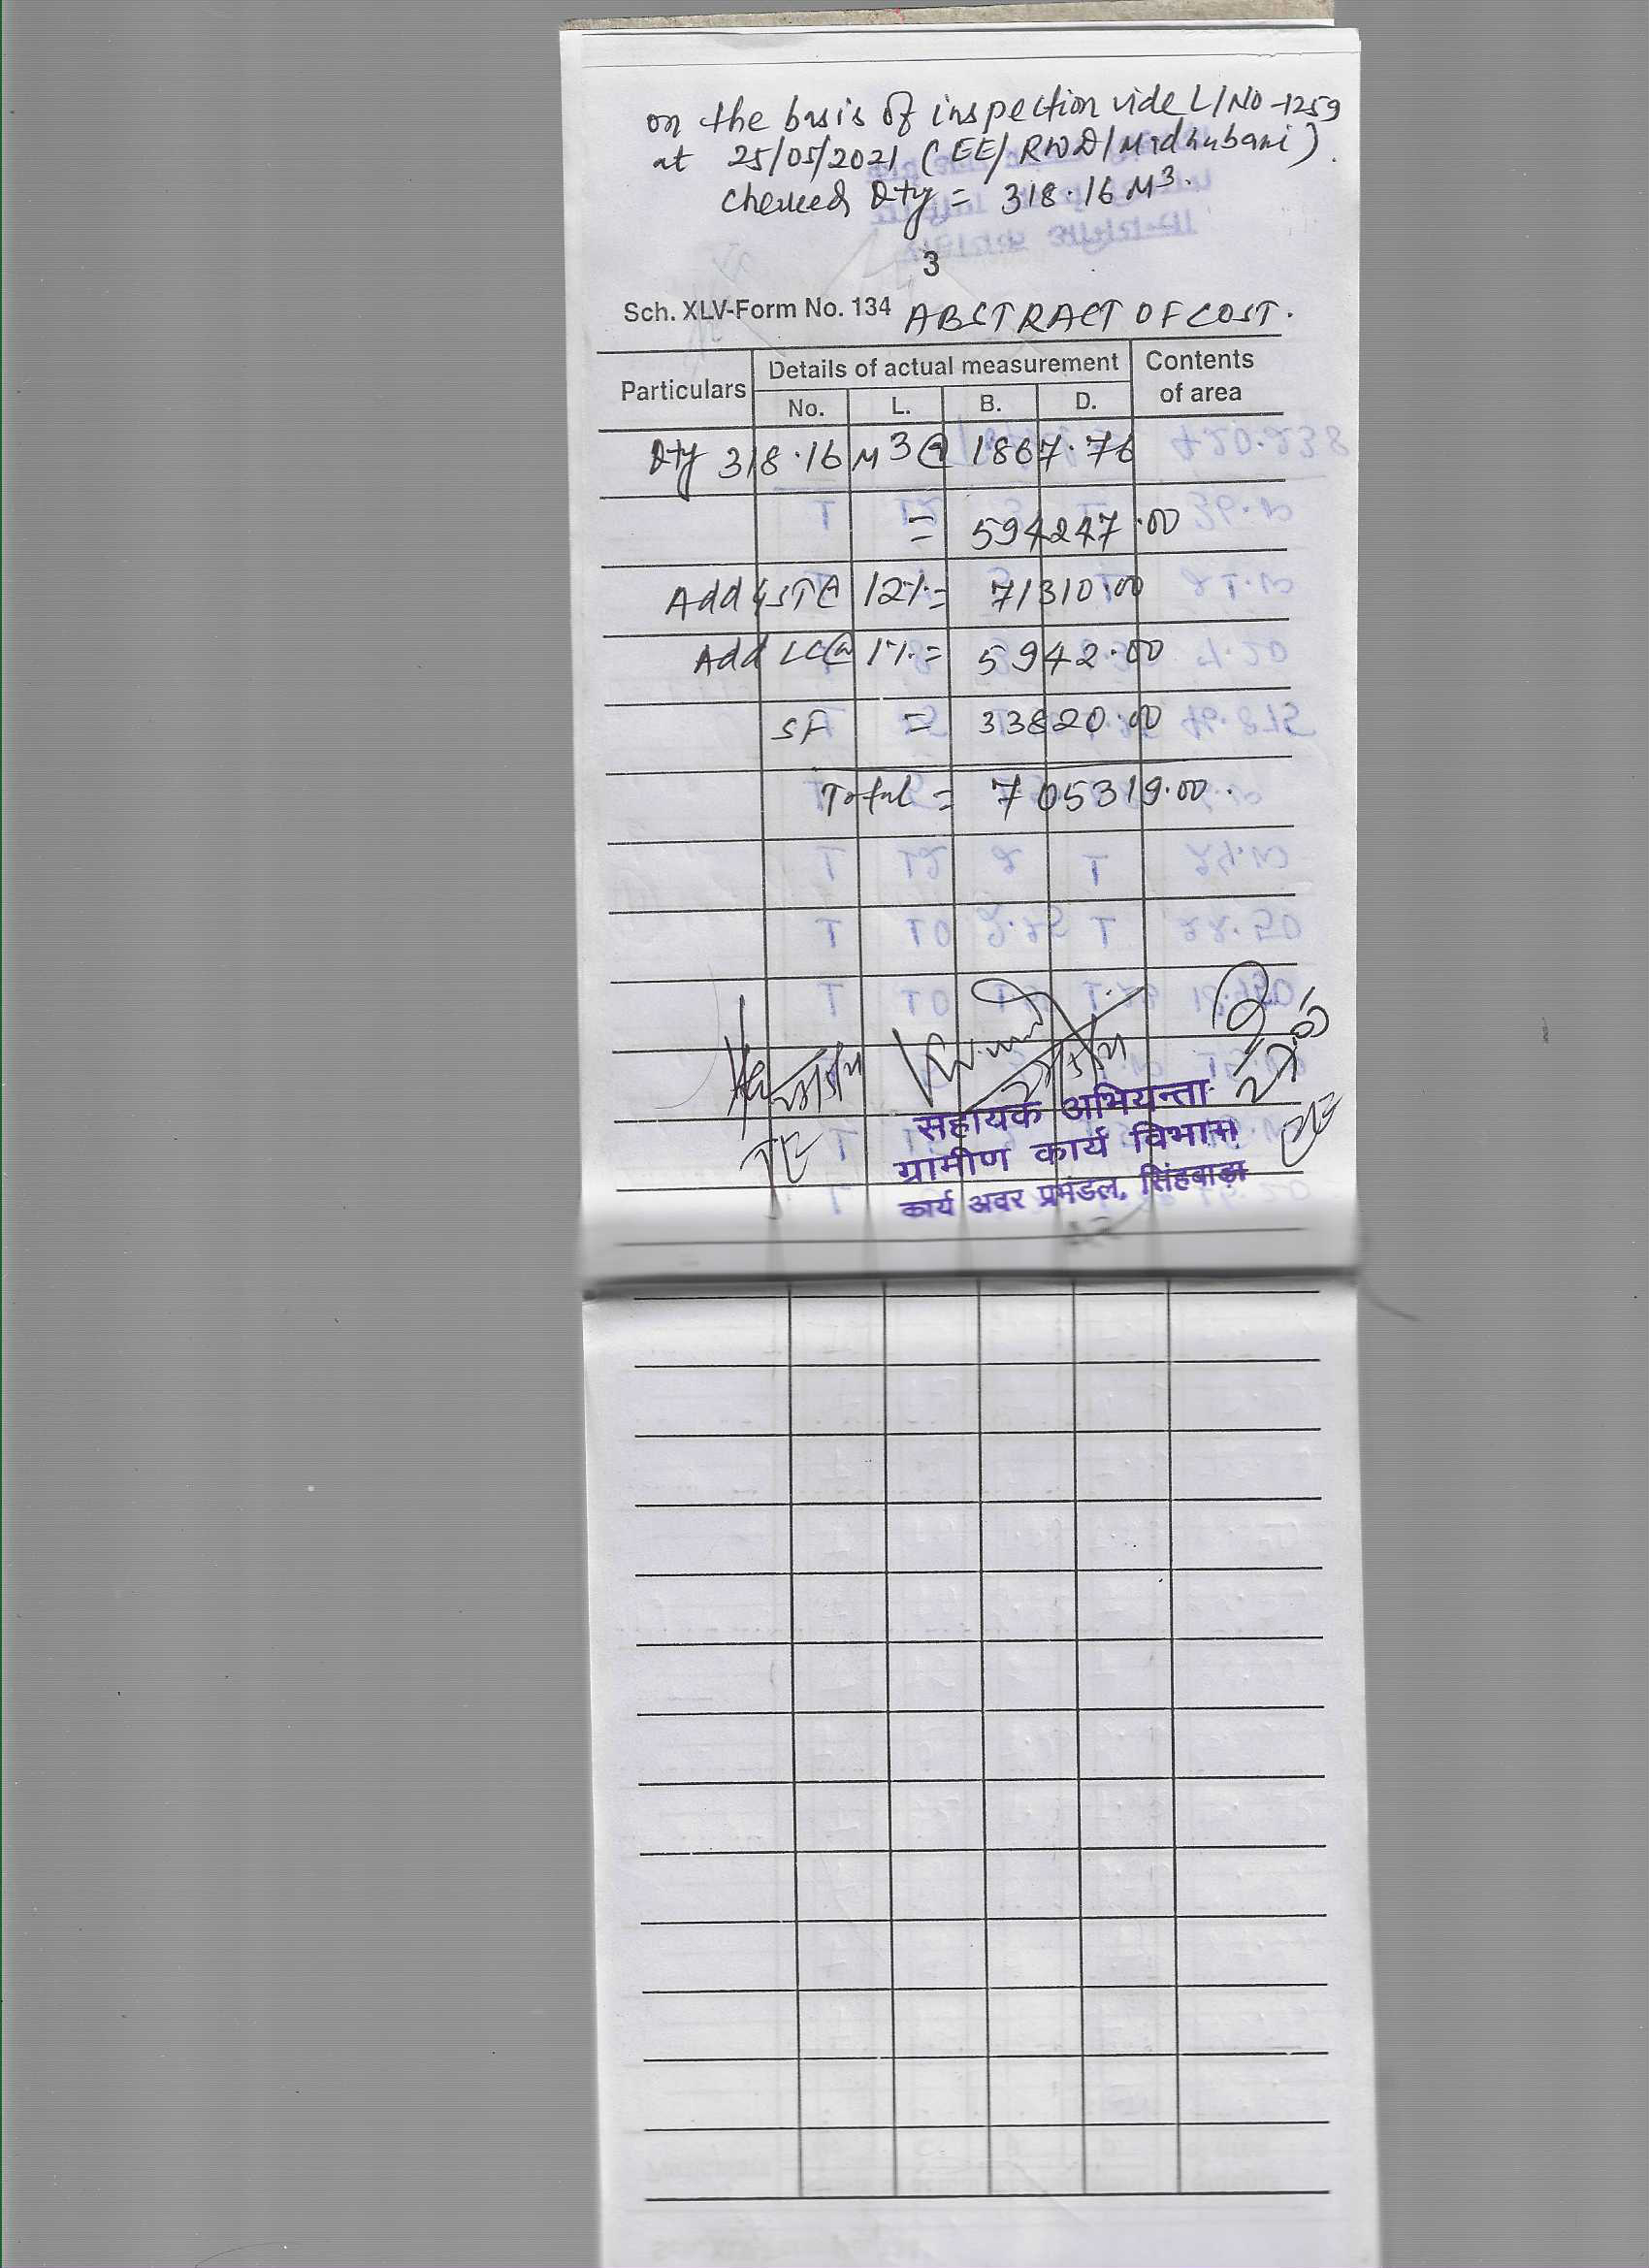 on the basis of inspection vide L/No-1259
at 25/05/2021 (EE/RWD/Madhubani).
Checked Qty = 318.16 M3.
3
Sch. XLV-Form No. 134 ABSTRACT OF COST.
Particulars Details of actual measurement Contents of area
No. L. B. D.
Qty 318.16 M3 @ 1867.76
= 594247.00
Add GST @ 12% = 71310.00
Add LC @ 1% = 5942.00
SF = 33820.00
Total = 705319.00.
JE
सहायक अभियन्ता
ग्रामीण कार्य विभाग
कार्य अवर प्रमंडल, सिंहवाड़ा